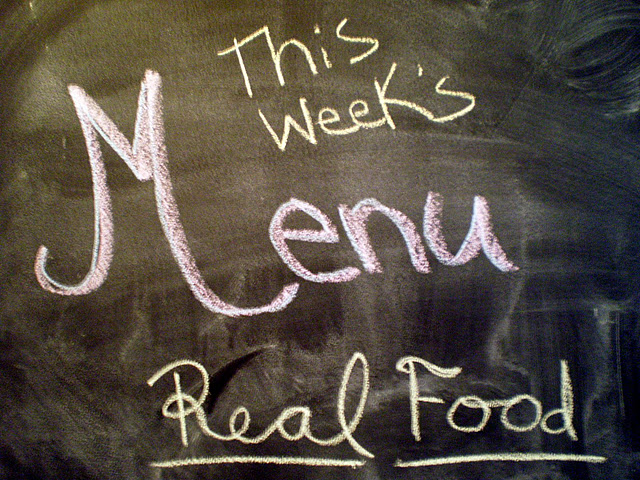 This
Week's
Menu
Real Food